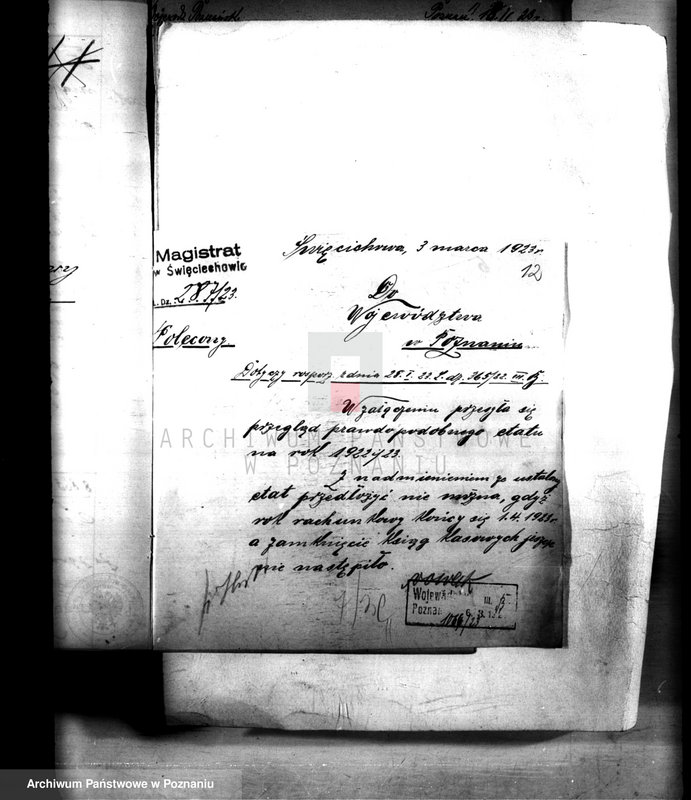 Magistrat
w Święciechowie
L. Dz. 287/23.
Polecony
Święciechowa, 3 marca 1923r.
12
Do
Województwa
w Poznaniu
Dotyczy rozporz. z dnia 25.I.22. L. dz. 265/22. III
W załączeniu przesyła się
przegląd prawdopodobnego etatu
na rok 1922/23.
Z nadmienieniem, że ustalony
etat przedłożyć nie można, gdyż
rok rachunkowy kończy się 1.4.1923r.
a zamknięcie ksiąg kasowych jeszcze
nie nastąpiło.
Wojew
Poznań
1066/23
ARCHIWUM PAŃSTWOWE
W POZNANIU
Archiwum Państwowe w Poznaniu